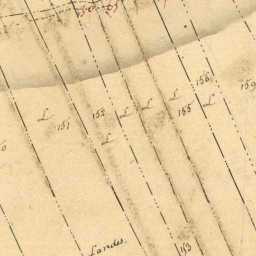 156
159
L
L
152
L
L
155
L
151
L
Landes.
153